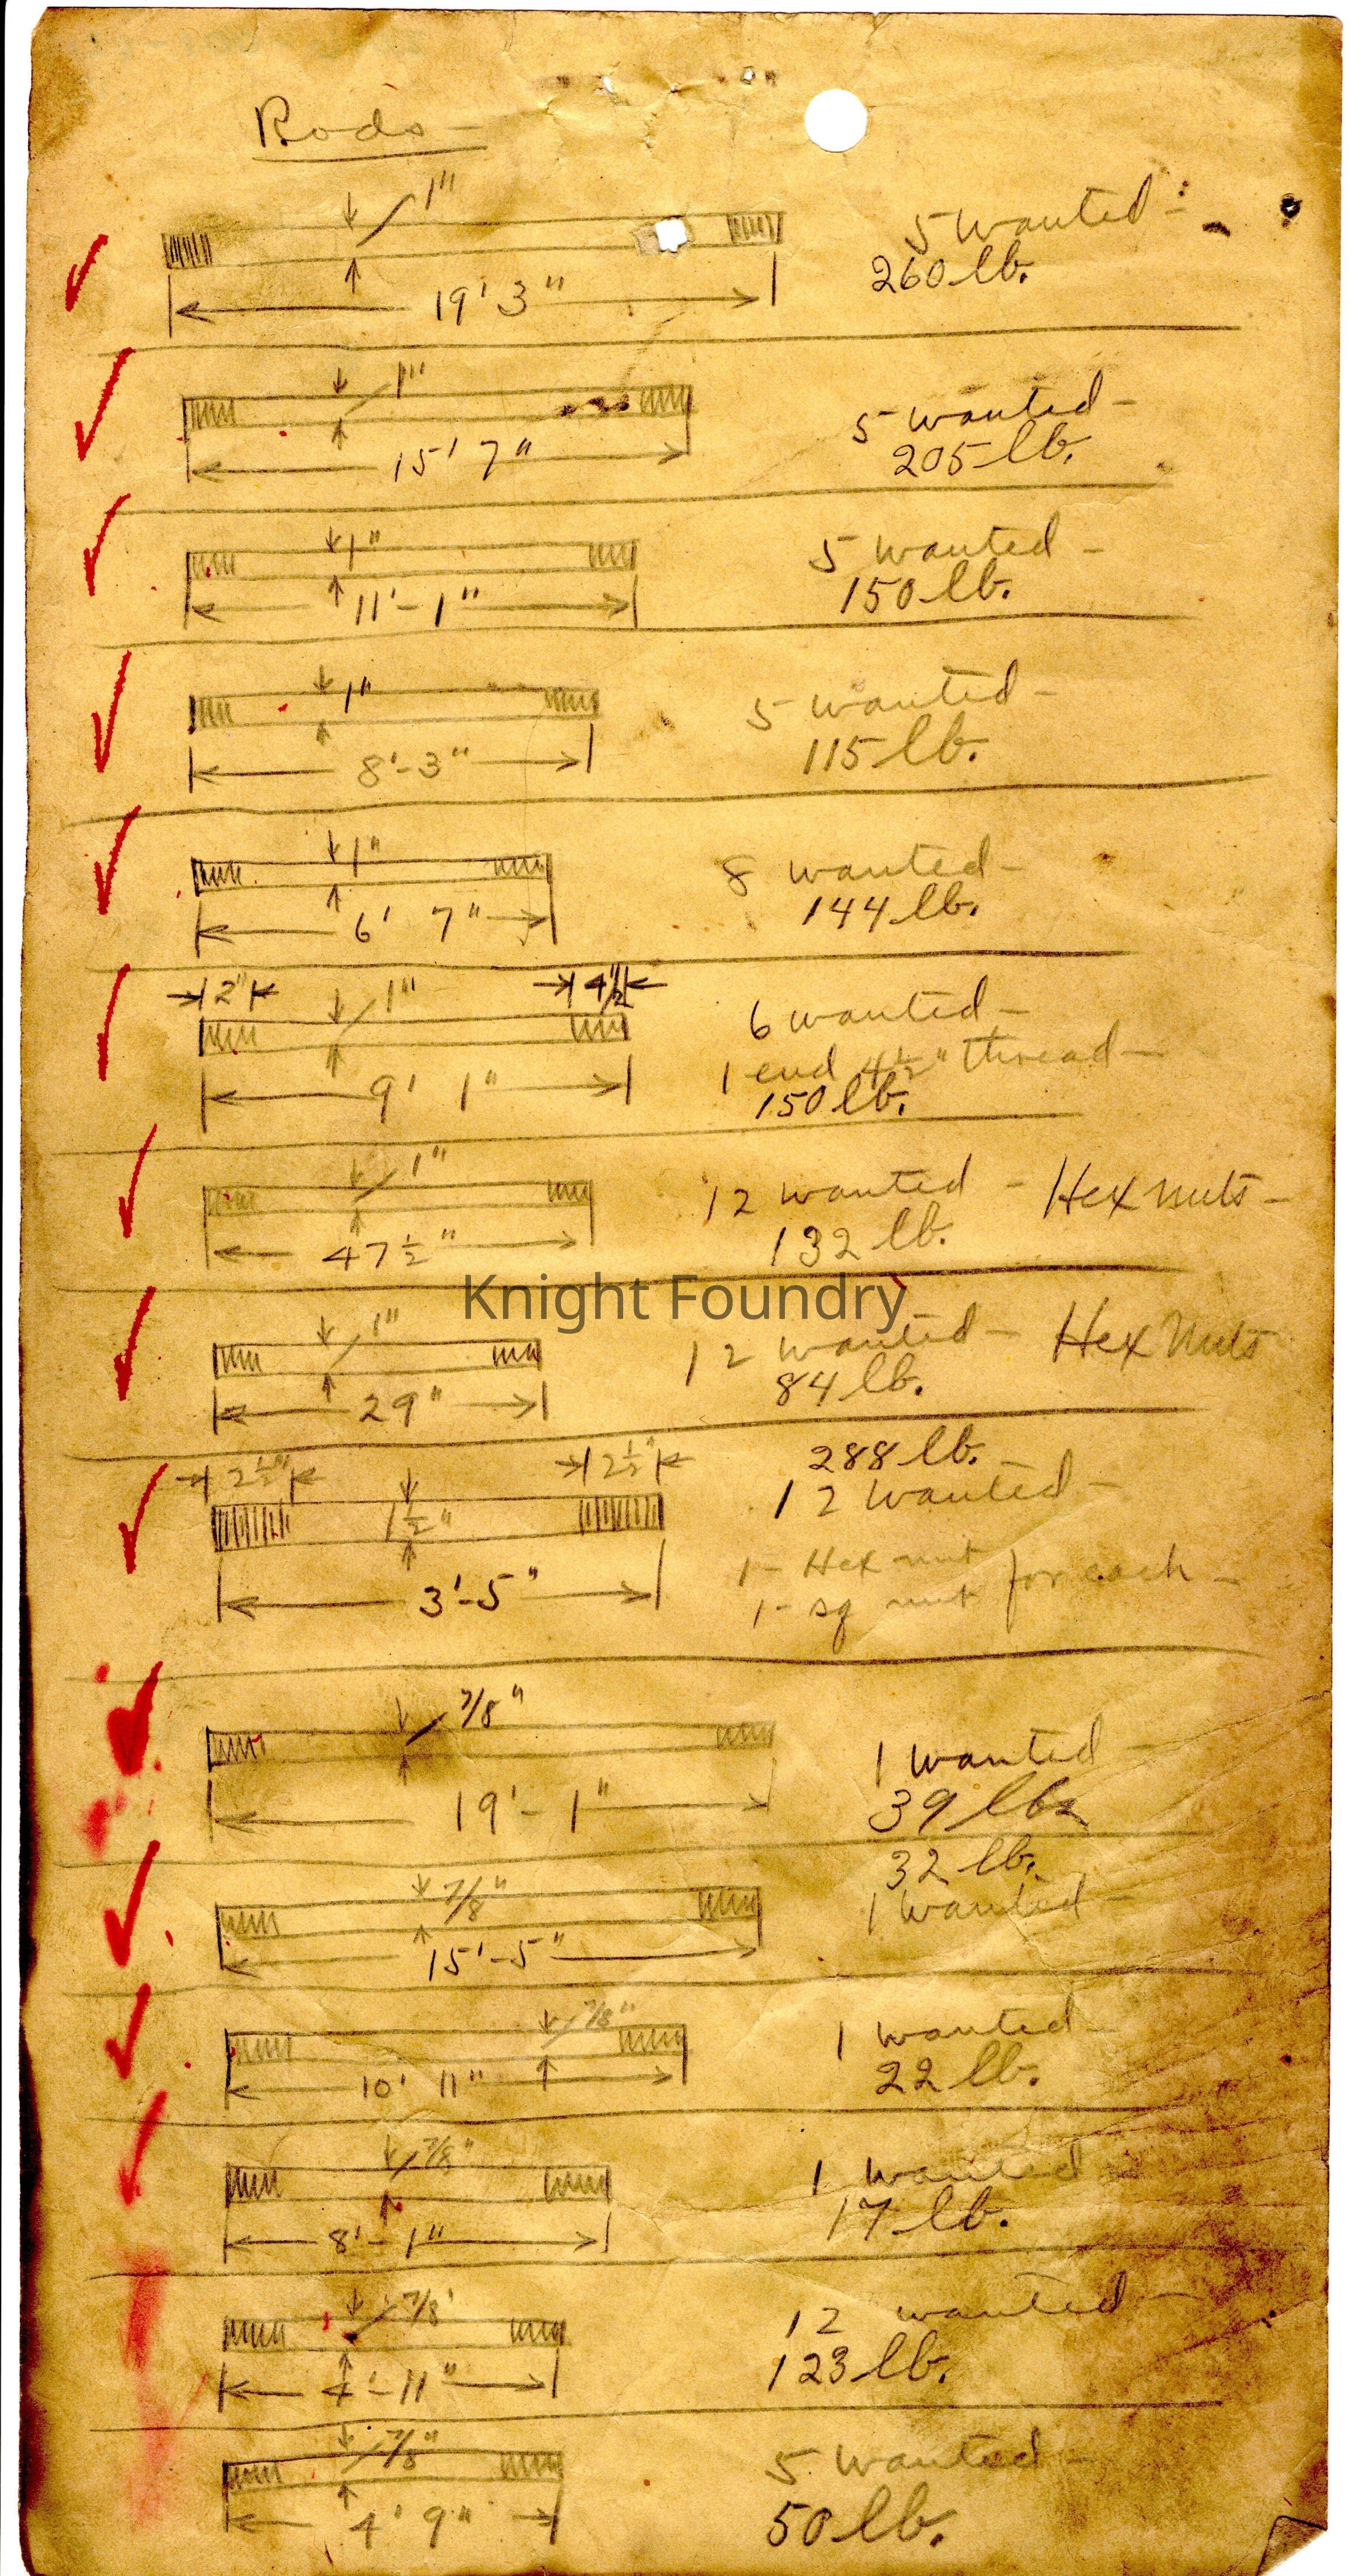 Rods -
1"
5 wanted -
260 lb.
19' 3"
1"
5 wanted -
205 lb.
15' 7"
1"
5 wanted -
150 lb.
11' - 1"
1"
5 wanted -
115 lb.
8' - 3"
1"
8 wanted -
144 lb.
6' 7"
2" 1" 4 1/2"
6 wanted -
1 end 4 1/2" thread -
150 lb.
9' 1"
1"
12 wanted - Hex nuts -
132 lb.
47 1/2"
Knight Foundry
1"
12 wanted - Hex Nuts
84 lb.
29"
288 lb.
2 1/2" 2 1/2"
12 wanted -
1 1/2"
1 - Hex nut
for each -
1 - sq nut
3' - 5"
7/8"
1 wanted -
39 lbs
19' - 1"
32 lb.
7/8"
1 wanted -
15' - 5"
7/8"
1 wanted -
22 lb.
10' 11"
7/8"
1 wanted
17 lb.
8' - 1"
7/8'
12 wanted -
123 lb.
4' - 11"
7/8"
5 wanted -
50 lb.
4' 9"